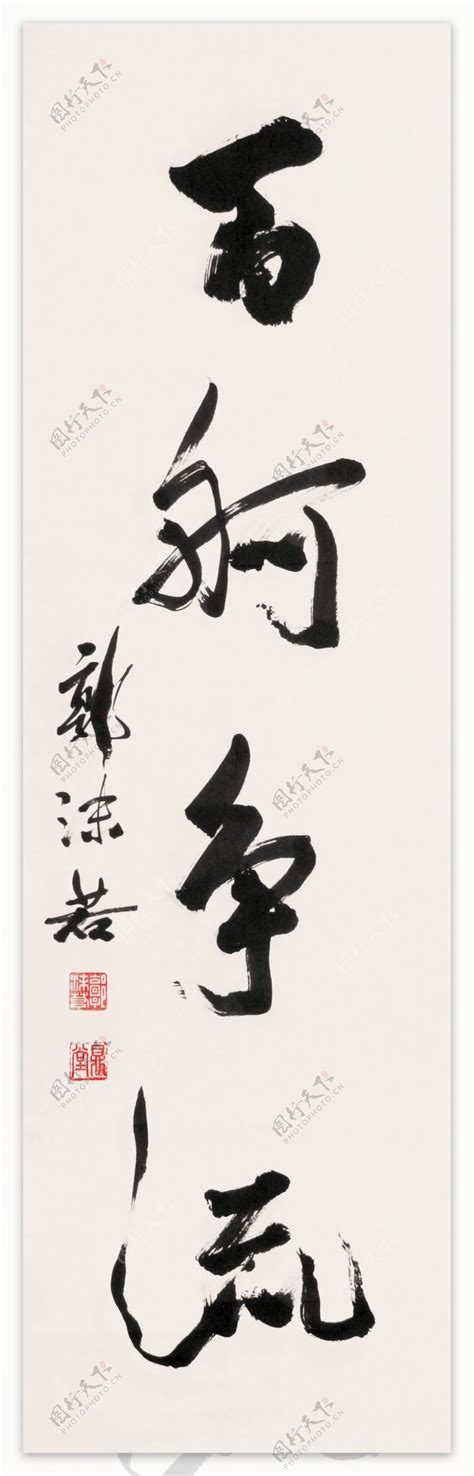 百舸争流
郭沫若
郭沫若
鼎堂
图行天下
PHOTOPHOTO.CN